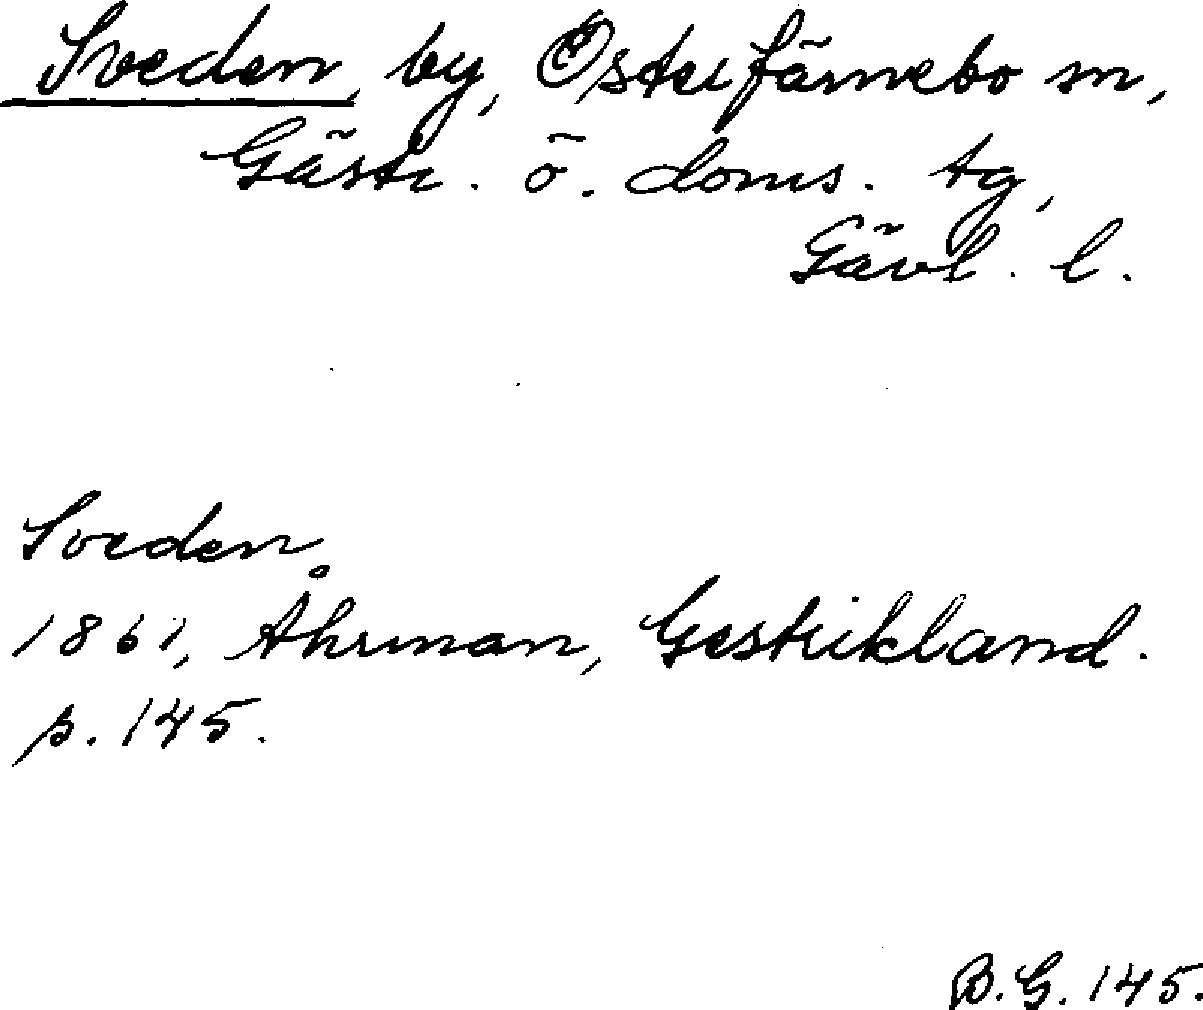 Sveden, by, Österfärnebo sn,
Gästr. ö. doms. tg,
Gävl. l.
Sveden
1861, Åhrman, Gestrikland.
s. 145.
B.G. 145.